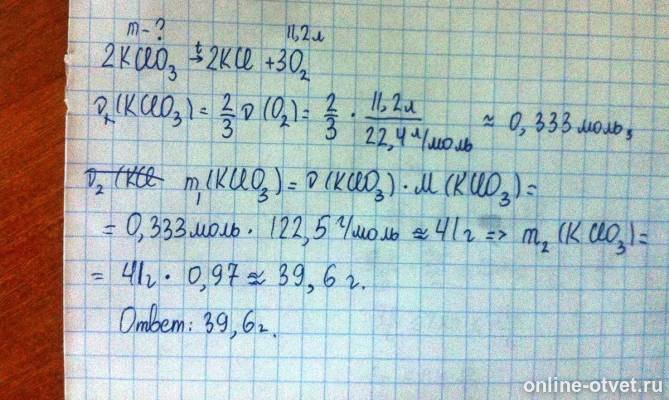 m-? 11,2л
2KClO₃ →t 2KCl + 3O₂
ν₁(KClO₃) = 2/3 ν(O₂) = 2/3 · 11,2л / 22,4 л/моль ≈ 0,333 моль,
ν₂(KCl m₁(KClO₃) = ν(KClO₃) · M(KClO₃) =
= 0,333 моль · 122,5 г/моль ≈ 41г => m₂(KClO₃) =
= 41г · 0,97 ≈ 39,6 г.
Ответ: 39,6г.
online-otvet.ru